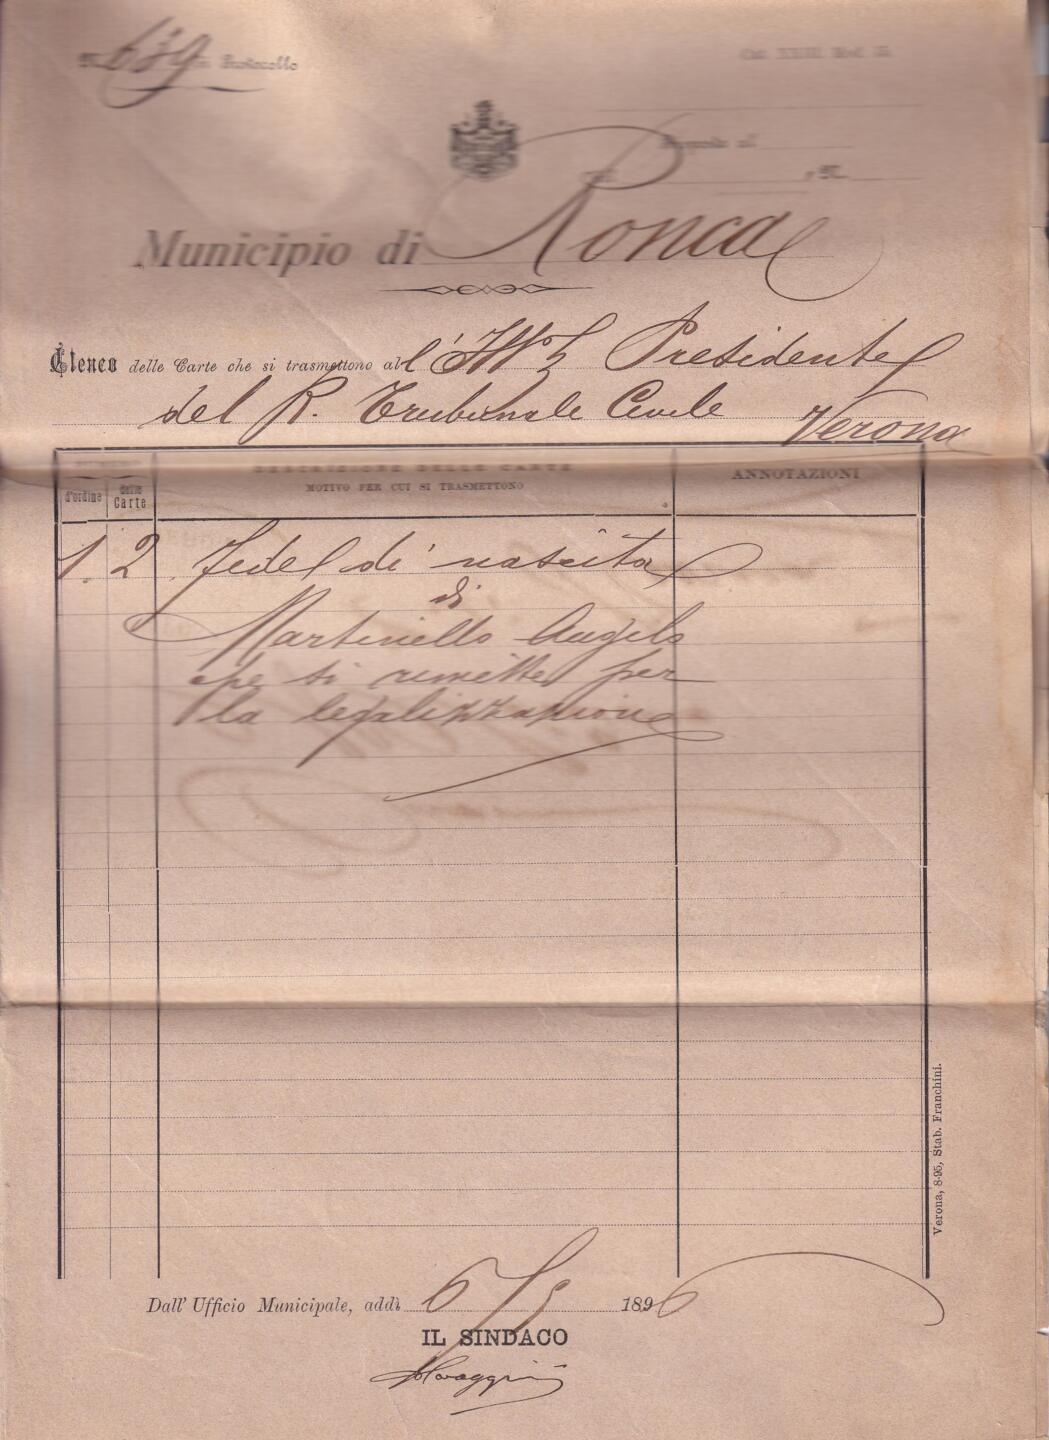 N. 639 di Protocollo
Risposta al
N.
Municipio di Roncà
Elenco delle Carte che si trasmettono all' Presidente
del R. Tribunale Civile Verona
NUMERO
d'ordine
delle Carte
DESCRIZIONE DELLE CARTE
MOTIVO PER CUI SI TRASMETTONO
ANNOTAZIONI
1. 2 Fede di nascita
di
Martinello Angelo
che si rimette per
la legalizzazione
Verona, 8-95, Stab. Franchini.
Dall' Ufficio Municipale, addì 6/5 1896
IL SINDACO